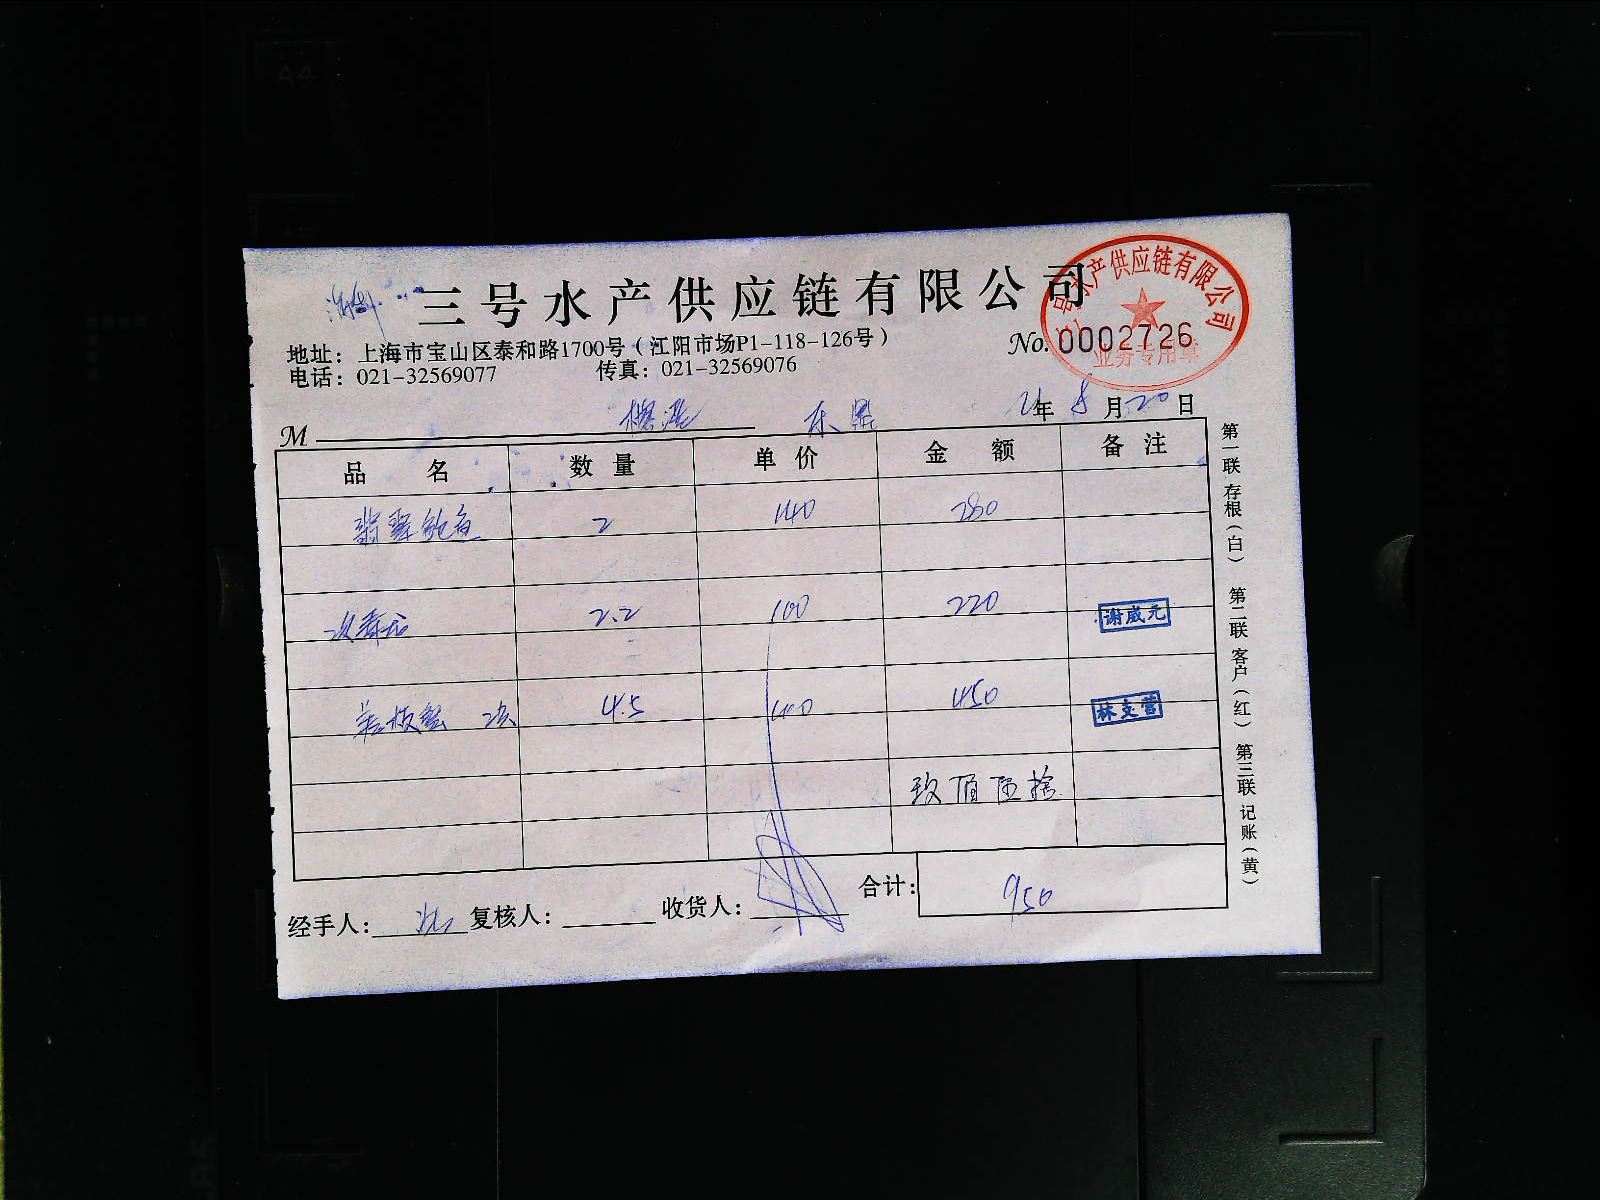 三号水产供应链有限公司
三号水产供应链有限公司
业务专用章
地址：上海市宝山区泰和路1700号（江阳市场P1-118-126号）
No. 0002726
电话：021-32569077 传真：021-32569076
21年 8月 20日
M 东鼎
品名 数量 单价 金额 备注
翡翠鲍鱼 2 140 280
2.2 100 220 谢威元
4.5 100 450 林支营
玖佰伍拾
合计： 950
经手人： 沈 复核人： 收货人：
第一联 存根（白） 第二联 客户（红） 第三联 记账（黄）